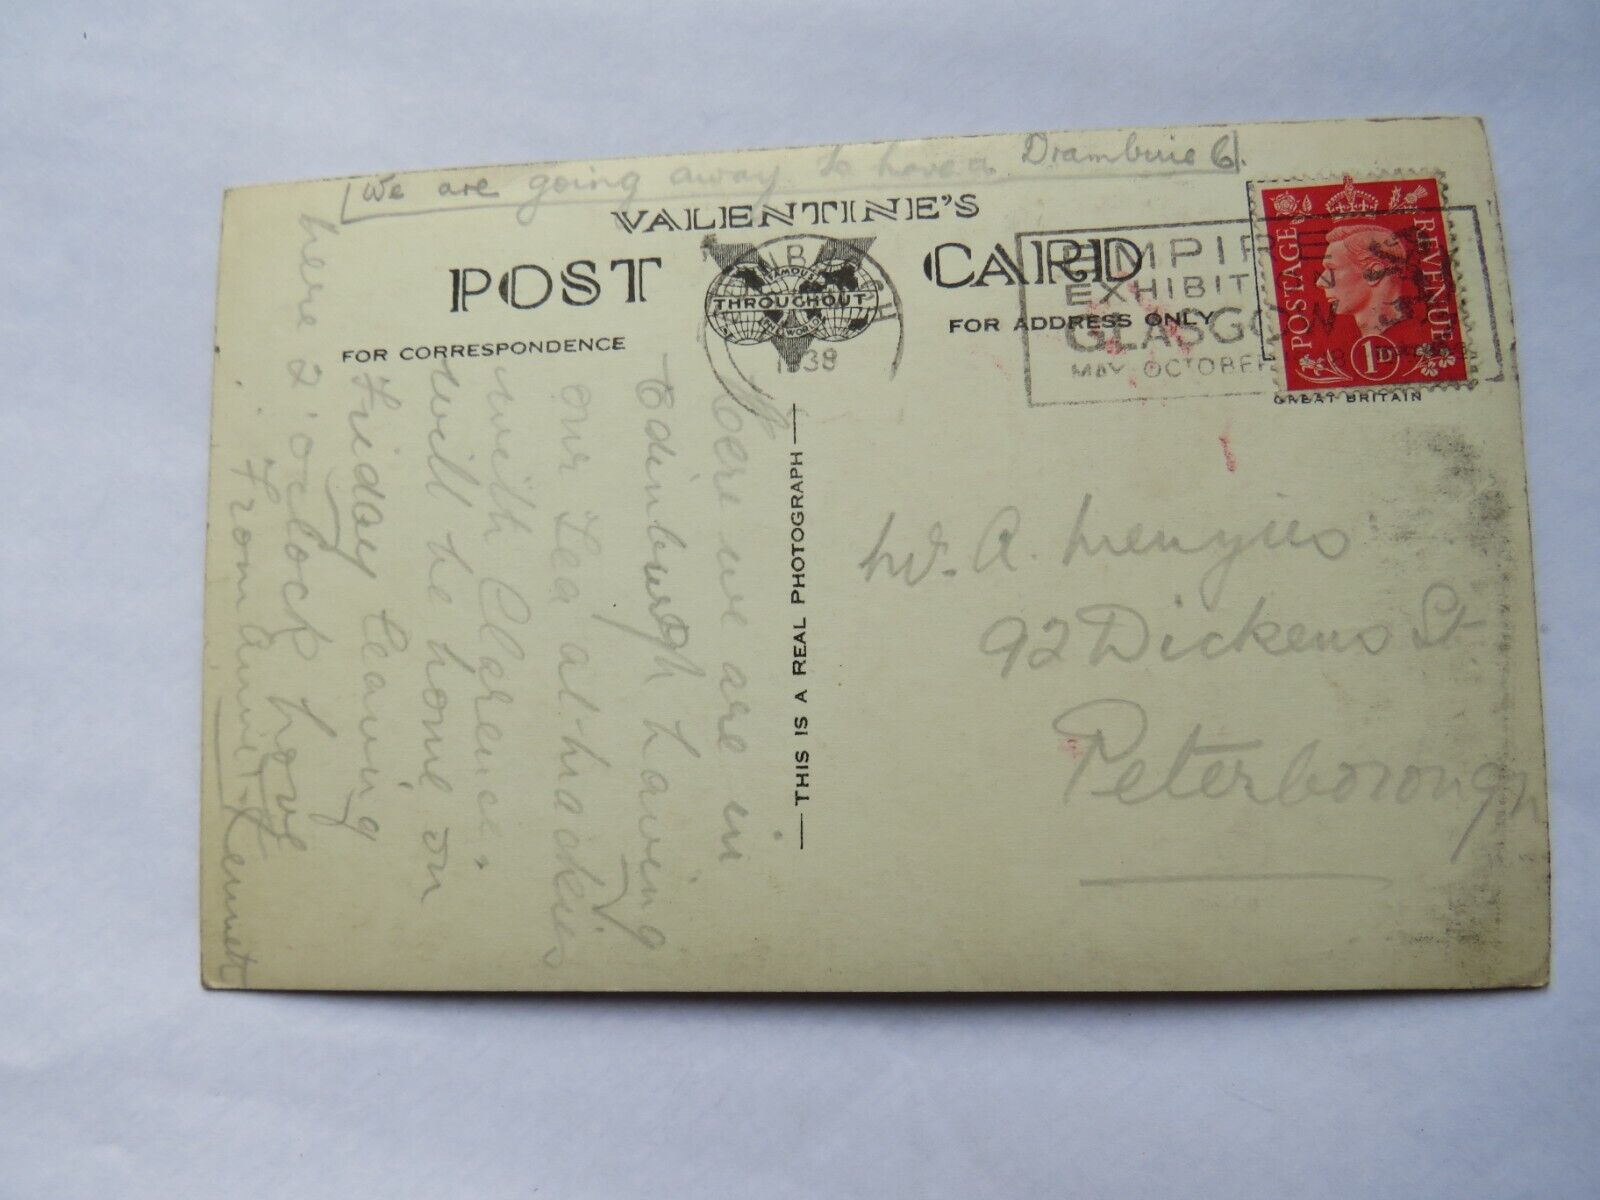 We are going away to have a Drambuie
VALENTINE'S
POST CARD
FAMOUS
THROUGHOUT
THE WORLD
FOR CORRESPONDENCE
FOR ADDRESS ONLY
1938
EMPIRE
EXHIBIT
GLASGOW
MAY OCTOBER
POSTAGE
REVENUE
1D
GREAT BRITAIN
THIS IS A REAL PHOTOGRAPH
Here we are in
Edinburgh having
our Tea at Mackies
with Clarence.
will be home on
Friday leaving
here 2 o'clock love
From Annie & Kenneth
W. A. Menzies
92 Dickens St
Peterborough